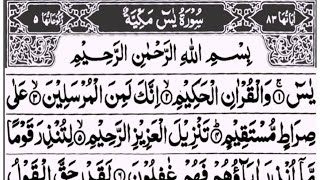 اٰیَاتُهَا ۸۳ سُوْرَةُ یٰسٓ مَكِّیَّةٌ رُكُوْعَاتُهَا ۵
بِسْمِ اللّٰهِ الرَّحْمٰنِ الرَّحِیْمِ
یٰسٓ ۱ وَالْقُرْاٰنِ الْحَكِیْمِ ۲ اِنَّكَ لَمِنَ الْمُرْسَلِیْنَ ۳ عَلٰی
صِرَاطٍ مُّسْتَقِیْمٍ ۴ تَنْزِیْلَ الْعَزِیْزِ الرَّحِیْمِ ۵ لِتُنْذِرَ قَوْمًا
مَّاۤ اُنْذِرَ اٰبَآؤُهُمْ فَهُمْ غٰفِلُوْنَ ۶ لَقَدْ حَقَّ الْقَوْلُ